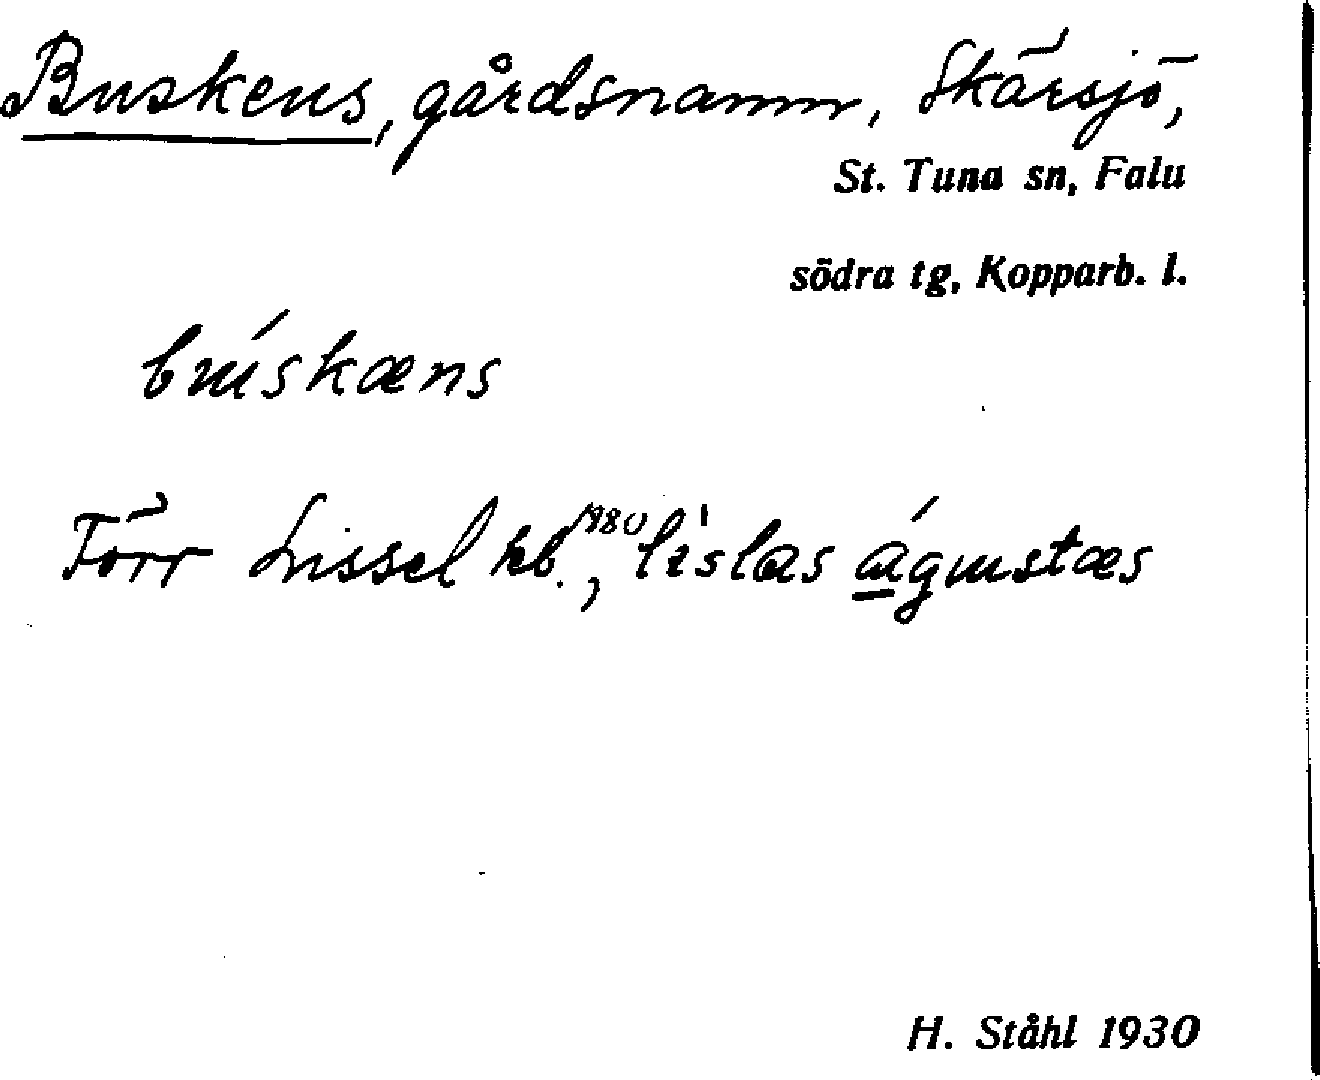 Buskens, gårdsnamn, Skärsjö,
St. Tuna sn, Falu
södra tg, Kopparb. l.
búskæns
Förr Lissel kb. 1880, lislas águstæs
H. Ståhl 1930